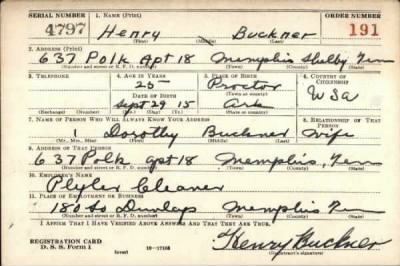 SERIAL NUMBER 1. NAME (Print) ORDER NUMBER
4797 Henry Buckner 191
(First) (Middle) (Last)
2. ADDRESS (Print)
637 Polk Apt 18 Memphis Shelby Ten
(Number and street or R. F. D. number) (Town) (County) (State)
3. TELEPHONE 4. AGE IN YEARS 5. PLACE OF BIRTH 6. COUNTRY OF CITIZENSHIP
25 Proctor
(Town or county)
DATE OF BIRTH
Sept 29 15 Ark USA
(Exchange) (Number) (Mo.) (Day) (Yr.) (State or country)
7. NAME OF PERSON WHO WILL ALWAYS KNOW YOUR ADDRESS 8. RELATIONSHIP OF THAT PERSON
Dorothy Buckner Wife
(Mr., Mrs., Miss) (First) (Middle) (Last)
9. ADDRESS OF THAT PERSON
637 Polk apt 18 Memphis, Tenn
(Number and street or R. F. D. number) (Town) (County) (State)
10. EMPLOYER'S NAME
Plyler Cleaner
11. PLACE OF EMPLOYMENT OR BUSINESS
180 So Dunlap Memphis Tenn
(Number and street or R. F. D. number) (Town) (County) (State)
I AFFIRM THAT I HAVE VERIFIED ABOVE ANSWERS AND THAT THEY ARE TRUE.
REGISTRATION CARD
D. S. S. Form 1 (over) 16—17105
Henry Buckner
(Registrant's signature)